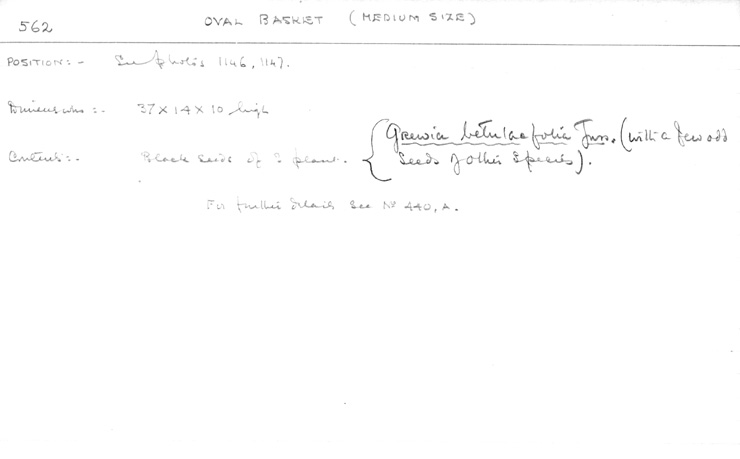 562 OVAL BASKET (MEDIUM SIZE)
POSITION:- See photos 1146, 1147.
Dimensions:- 37 x 14 x 10 high
Contents:- Black seeds of ? plant. { Grewia betulaefolia Juss. (with a few odd
seeds of other species).
For further details see No 440, A.